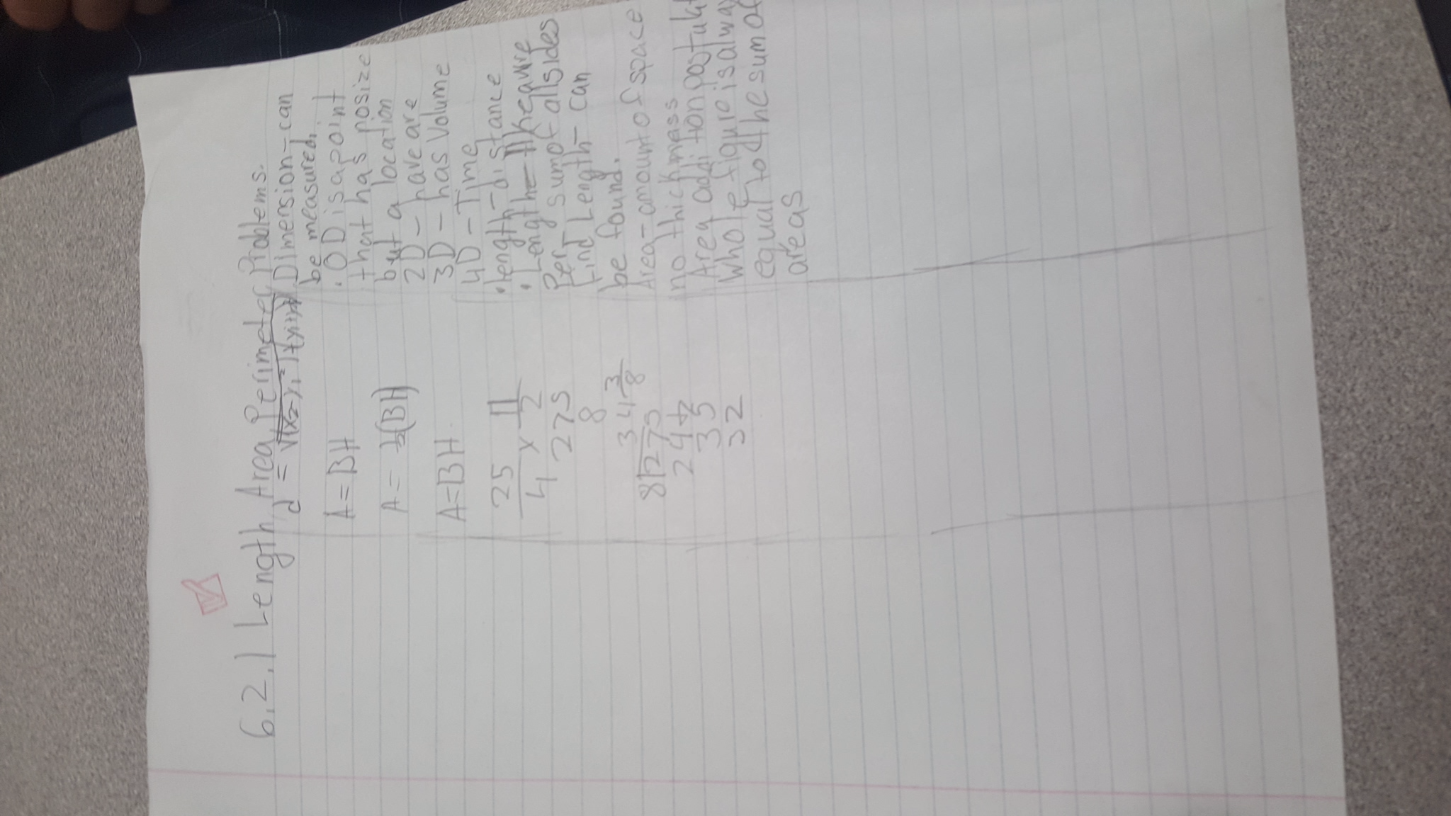 6.2.1 Length, Area Perimeter Problems.
d =
A=BH
A= ½(BH)
A=BH
25/4 x 11/2
275
8
34 3/8
8 275
24
35
32
Dimension-can
be measured.
. 0D is a point
that has no size
but a location
2D - have are
3D - has Volume
4D - Time
. length-distance
. Length-
Per sum of all sides
Find Length- can
be found.
Area-amount of space
no thickness
Area addition
Whole figure is alway
equal to the sum of
areas